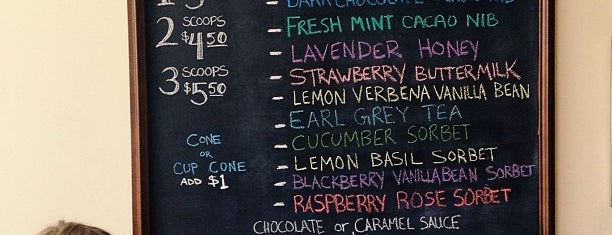 2 SCOOPS $4.50
3 SCOOPS $5.50
CONE
or
CUP CONE
ADD $1
- FRESH MINT CACAO NIB
- LAVENDER HONEY
- STRAWBERRY BUTTERMILK
- LEMON VERBENA VANILLA BEAN
- EARL GREY TEA
- CUCUMBER SORBET
- LEMON BASIL SORBET
- BLACKBERRY VANILLA BEAN SORBET
- RASPBERRY ROSE SORBET
CHOCOLATE or CARAMEL SAUCE